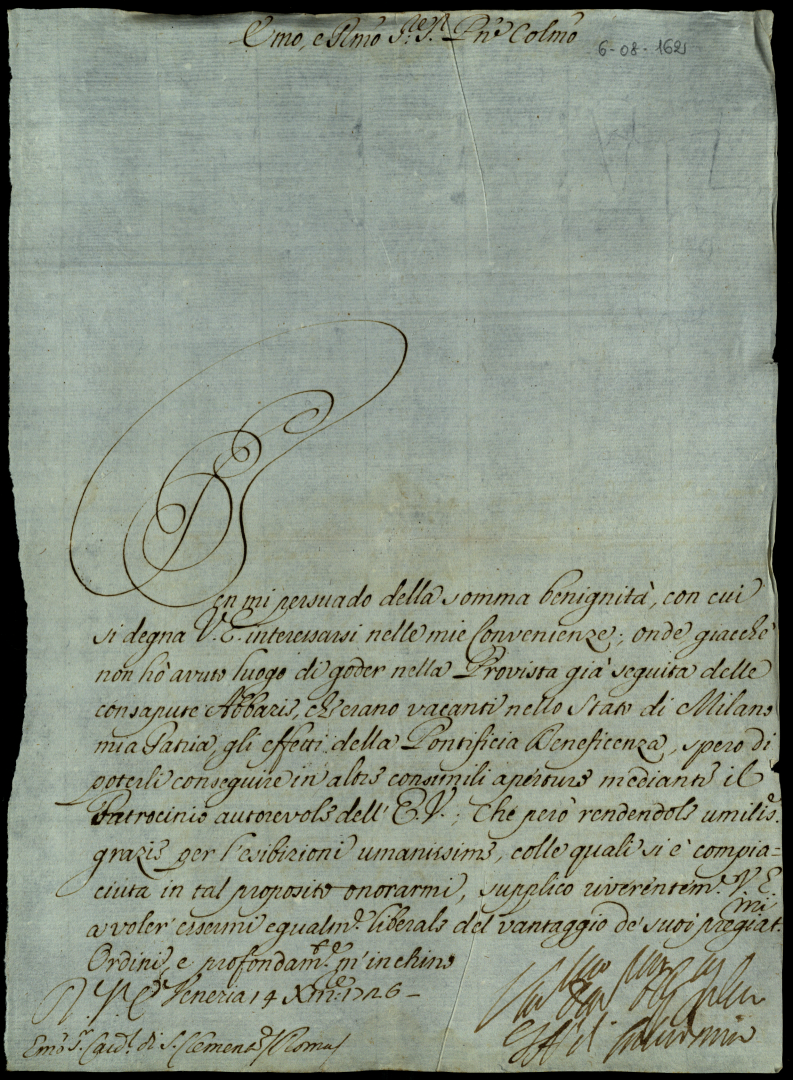 Emo, e Rmo Sr. Sr. Pne Colmo
6-08-1621
Ben mi persuado della somma benignità, con cui
si degna V. E. interessarsi nelle mie Convenienze; onde giacchè
non hò avuto luogo di goder nella Provista già seguita delle
consapute Abbazie, ch'erano vacanti nello Stato di Milano
mia Patria, gli effetti della Pontificia Beneficenza, spero di
poterli conseguire in altre consimili aperture mediante il
Patrocinio autorevole dell' E. V.; Che però rendendole umilis.e
grazie per l'esibizioni umanissime, colle quali si è compia=
ciuta in tal proposito onorarmi, supplico riverentem.e V. E.
a voler essermi egualm.e liberale del vantaggio de' suoi pregiat.mi
Ordini, e profondam.te m'inchino
D. V. E. Venezia 14 Xmre 1726
Emo Sr. Card.l di S. Clemente / Roma /